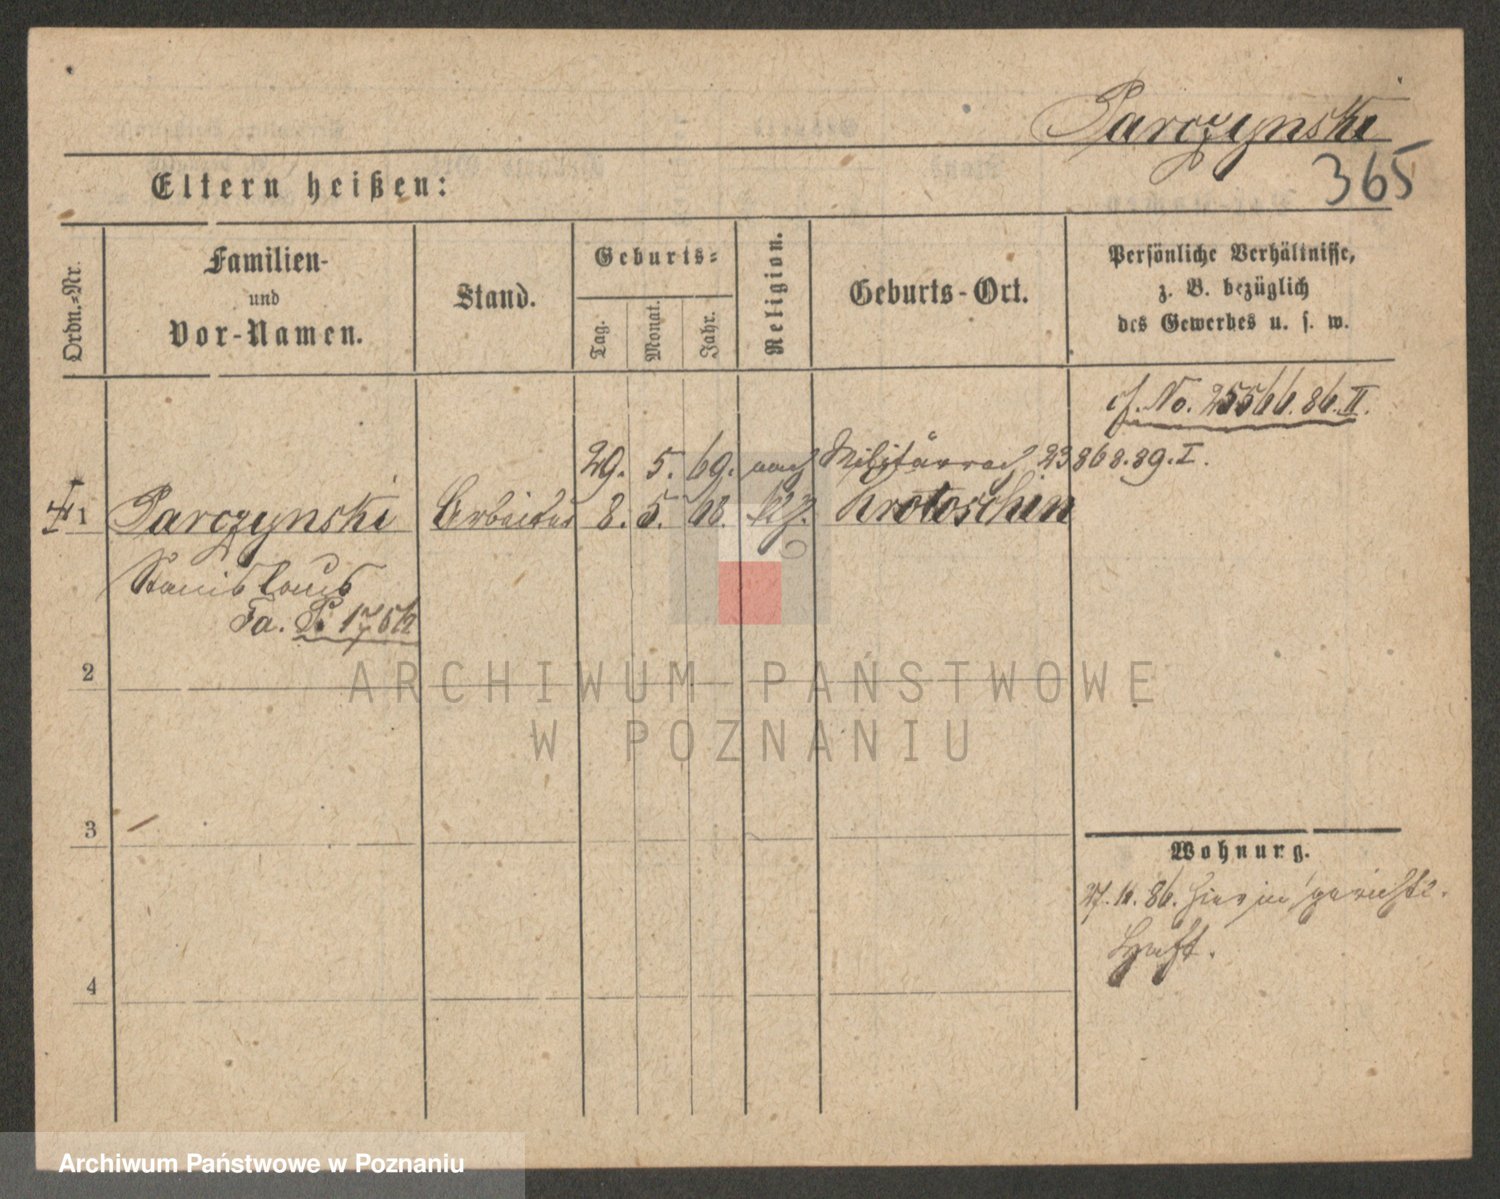 Parczynski
365
Eltern heißen:
Ordn.-Nr.
Familien-
und
Vor-Namen.
Stand.
Geburts-
Tag.
Monat.
Jahr.
Religion.
Geburts-Ort.
Persönliche Verhältnisse,
z. B. bezüglich
des Gewerbes u. s. w.
cf. No. 25566.86.II.
29. 5. 69. nach 23868.89.I.
1 Parczynski Arbeiter 8. 5. 68. Krotoschin
Stanislaus
Fa. P.
2
3
4
Wohnung.
86. hier in gerichtl.
Haft.
ARCHIWUM PAŃSTWOWE
W POZNANIU
Archiwum Państwowe w Poznaniu